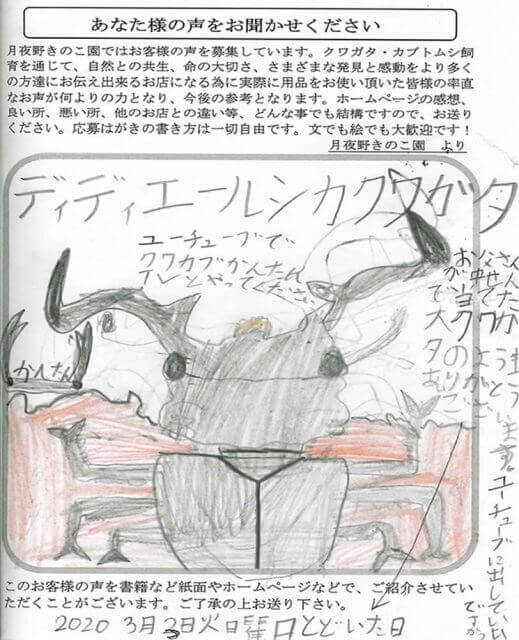 あなた様の声をお聞かせください
月夜野きのこ園ではお客様の声を募集しています。クワガタ・カブトムシ飼
育を通じて、自然との共生、命の大切さ、さまざまな発見と感動をより多く
の方達にお伝え出来るお店になる為に実際に用品をお使い頂いた皆様の率直
なお声が何よりの力となり、今後の参考となります。ホームページの感想、
良い所、悪い所、他のお店との違い等、どんな事でも結構ですので、お送り
ください。応募はがきの書き方は一切自由です。文でも絵でも大歓迎です！
月夜野きのこ園　より
ディディエールシカクワガタ
ユーチューブで
クワカブかんたん
とやってください
かんたん
お父さん
ユーチューブに出していい
ですか
このお客様の声を書籍など紙面やホームページなどで、ご紹介させてい
ただくことがございます。ご了承の上お送り下さい。
2020 3月3日火曜日とどいた日